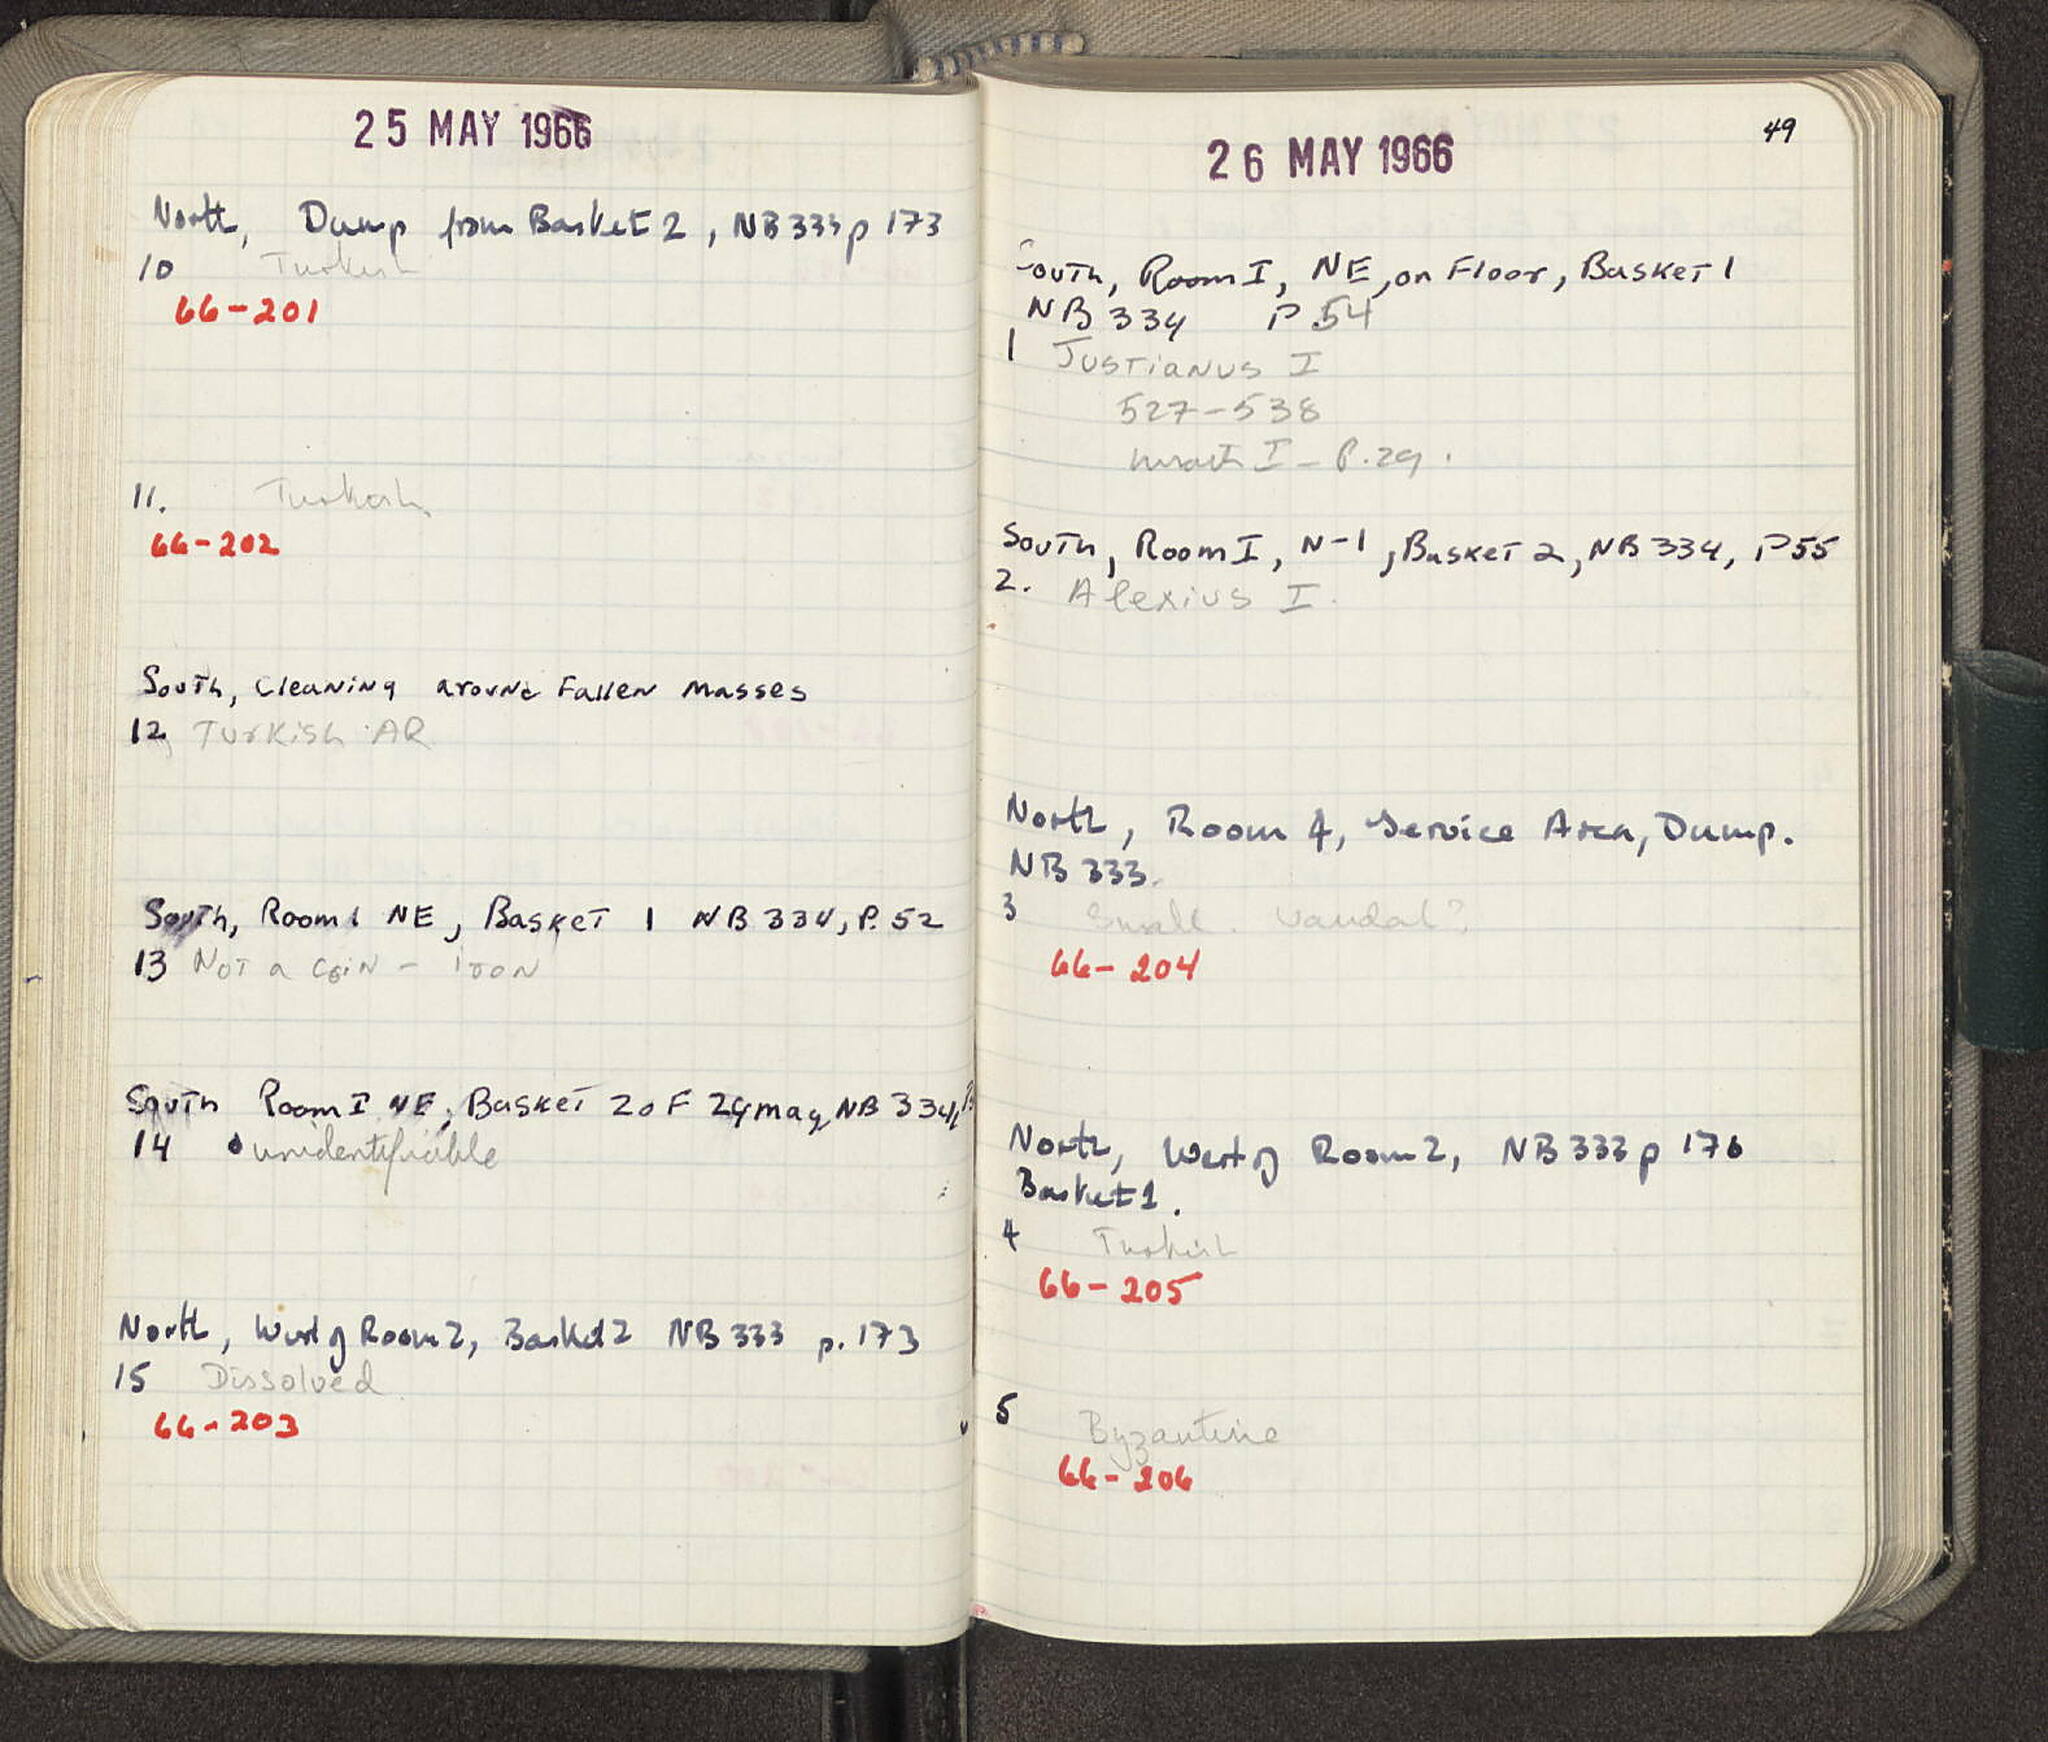 25 MAY 1966
North, Dump from Basket 2, NB 333 p 173
10 Turkish
66-201
11. Turkish
66-202
South, Cleaning around Fallen Masses
12 Turkish AR
South, Room I NE, Basket 1 NB 334, P. 52
13 Not a coin - iron
South Room I NE, Basket 2 of 24 may NB 334
14 unidentifiable
North, West of Room 2, Basket 2 NB 333 p. 173
15 Dissolved
66-203
49
26 MAY 1966
South, Room I, NE, on Floor, Basket 1
NB 334 P 54
1 Justianus I
527-538
I - P. 29.
South, Room I, N-1, Basket 2, NB 334, P 55
2. Alexius I.
North, Room 4, Service Area, Dump.
NB 333.
3 Small. Vandal?
66-204
North, West of Room 2, NB 333 p 176
Basket 1.
4 Turkish
66-205
5 Byzantine
66-206